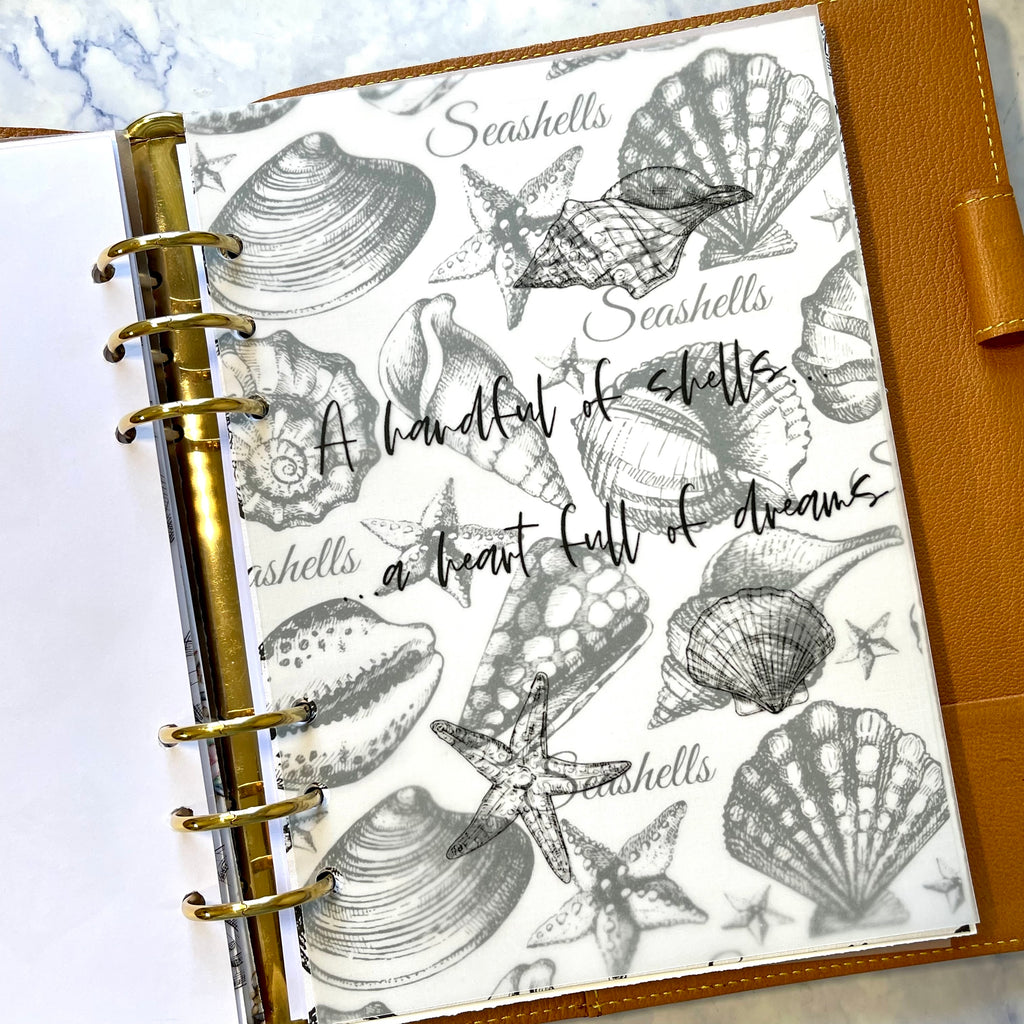 Seashells
Seashells
A handful of shells...
...a heart full of dreams
ashells
Seashells